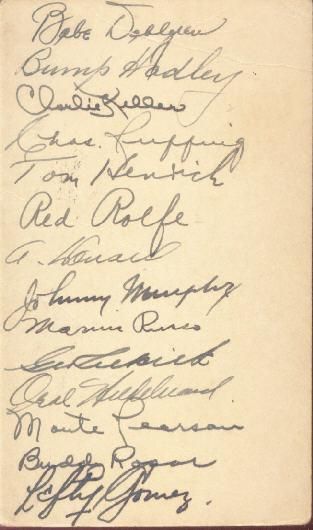 Babe Dahlgren
Bump Hadley
Charlie Keller
Chas. Ruffing
Tom Henrich
Red Rolfe
Johnny Murphy
Marius Russo
Oral Hildebrand
Monte Pearson
Buddy Rosar
Lefty Gomez.